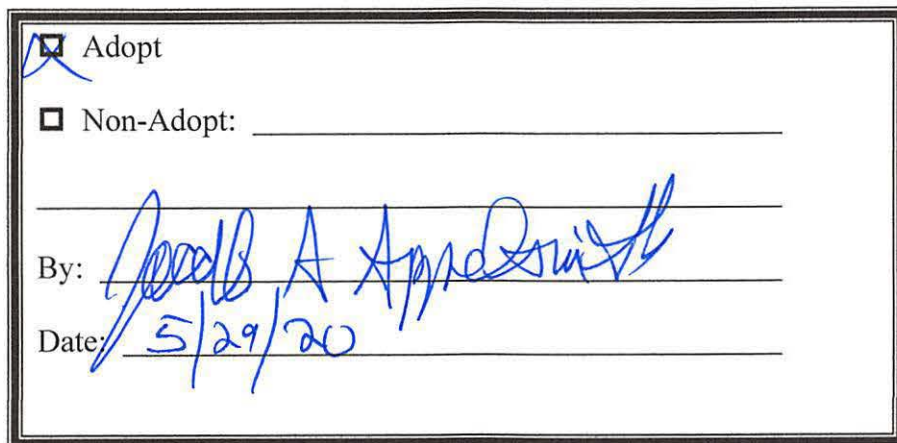 Adopt
Non-Adopt:
By: A Appelsmith
Date: 5/29/20